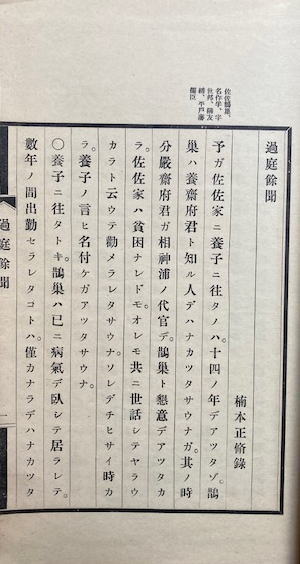 佐佐鵲巢、
名作孚、字
世邦、稱友
、平戶藩
儒臣
過庭餘聞
楠本正脩錄
予ガ佐佐家ニ養子ニ往タノハ。十四ノ年デアツタゾ。鵲
巢ハ養齋府君ト知ル人デハナカツタサウナガ。其ノ時
分嚴齋府君ガ相神浦ノ代官デ。鵲巢ト懇意デアツタカ
ラ。佐佐家ハ貧困ナレドモ。オレモ共ニ世話シテヤラウ
カラト云ウテ勸メラレタサウナ。ソレデチヒサイ時カ
ラ。養子ノ言ヒ名付ケガアツタサウナ。
○養子ニ往タトキ。鵲巢ハ已ニ病氣デ臥シテ居ラレテ。
數年ノ間出勤セラレタコトハ。僅カナラデハナカツタ
過庭餘聞
一